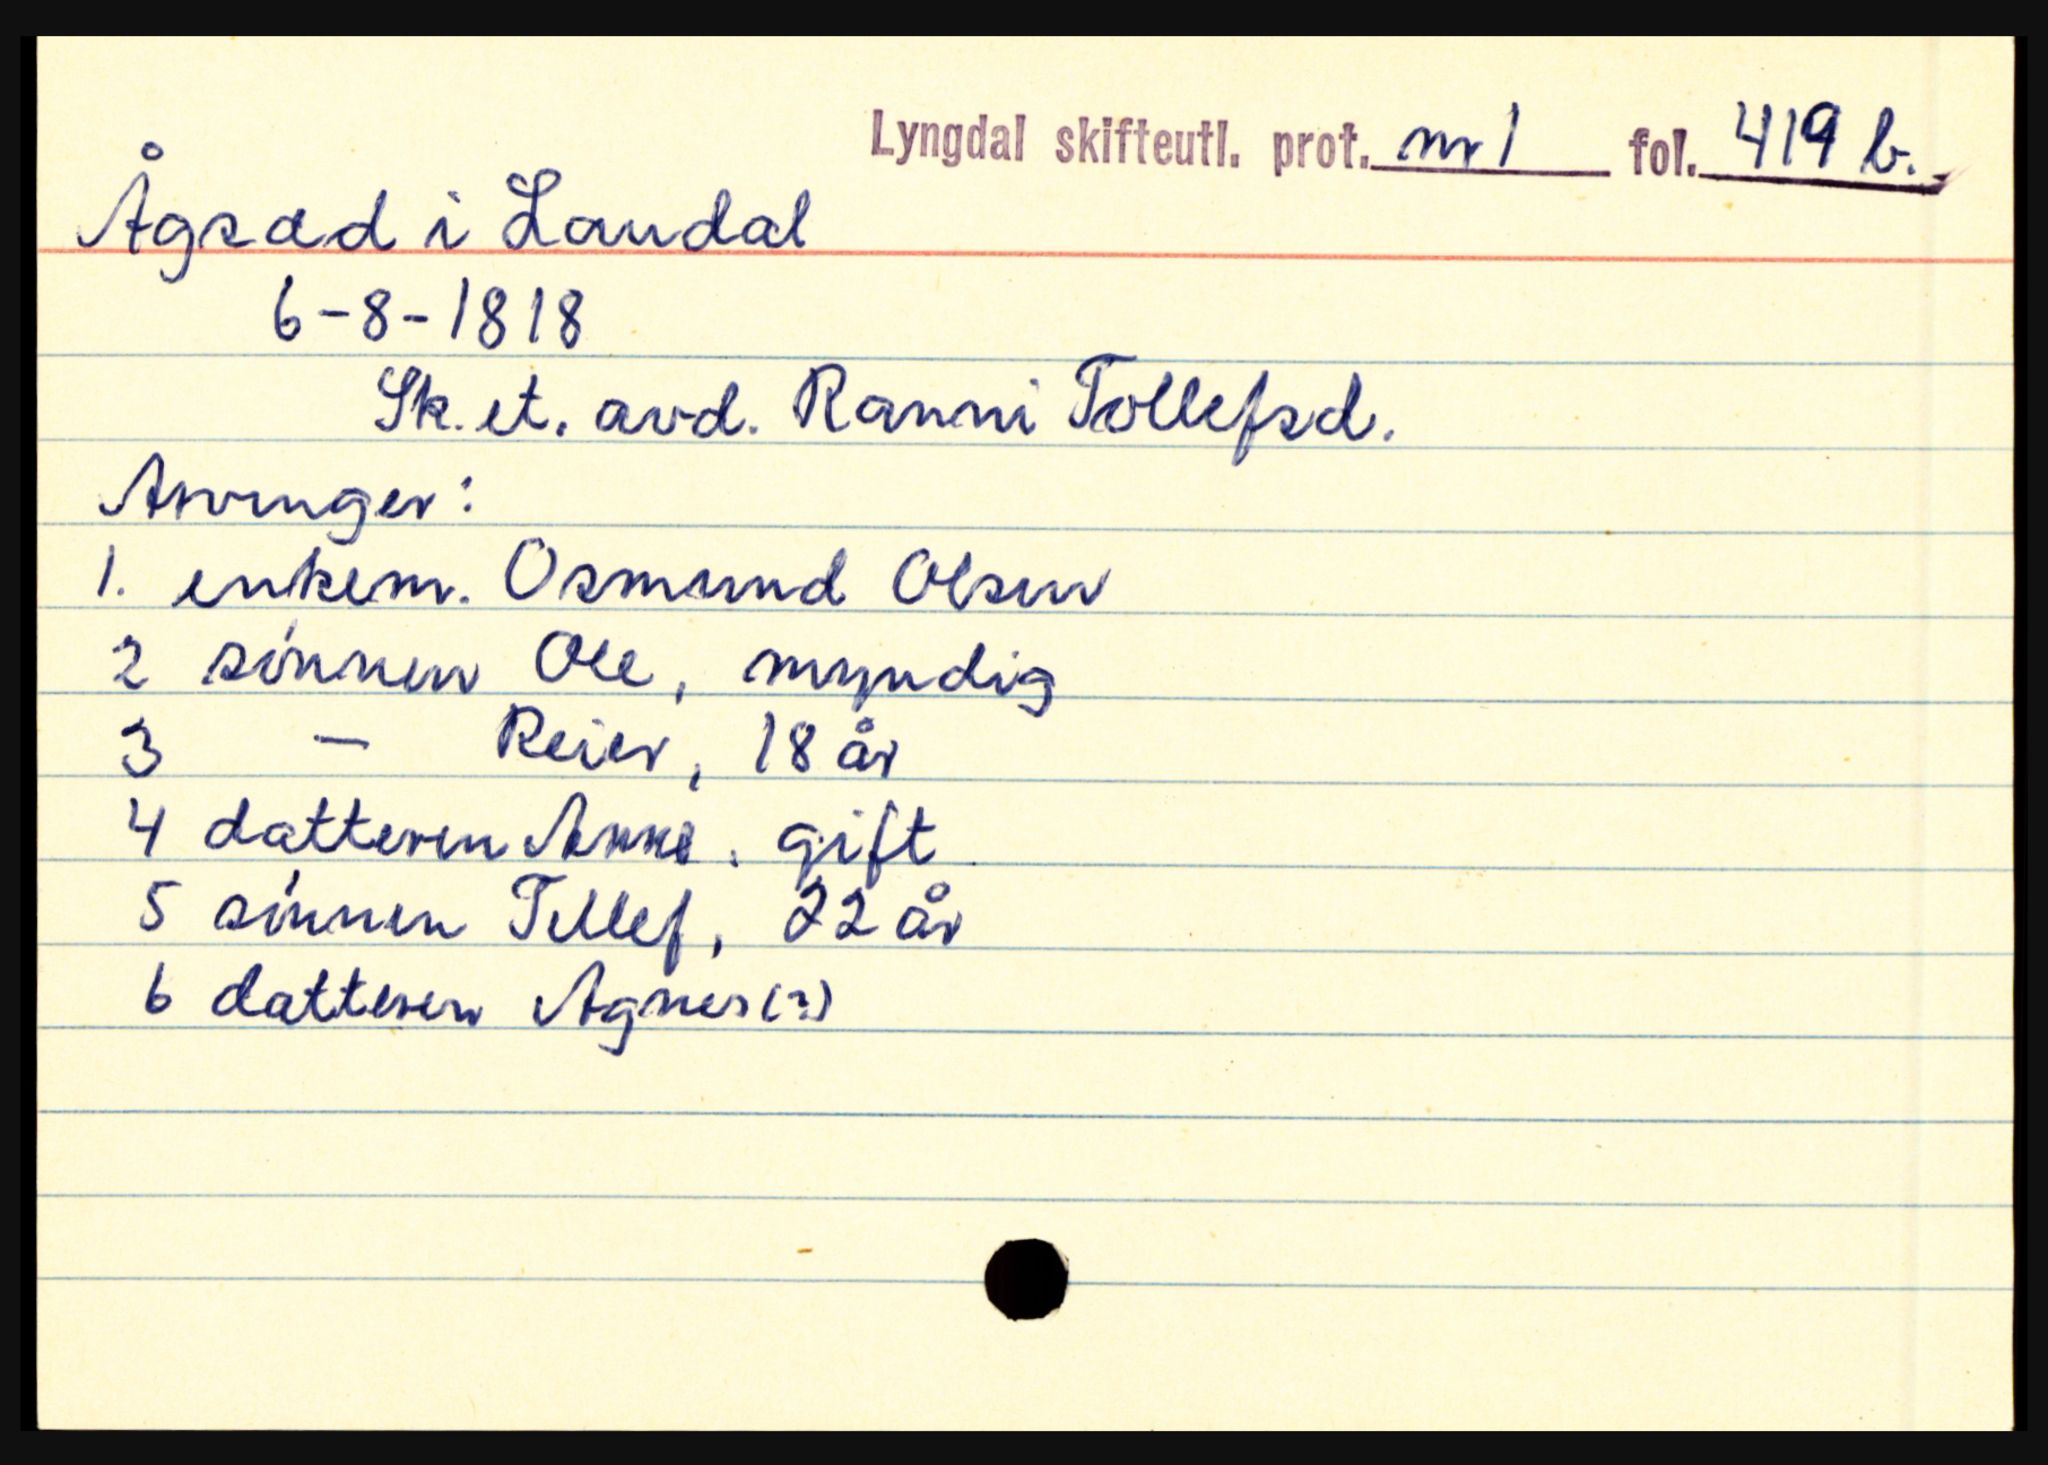 Lyngdal skifteutl. prot. nr 1 fol. 419 b.
Ågsæd i Laudal
6-8-1818
Sk. et. avd. Ranni Tollefsd.
Arvinger:
1. enkem. Osmund Olsen
2 sönnen Ole, myndig
3 — Reier, 18 år
4 datteren Anne. gift
5 sönnen Tellef, 22 år
6 datteren Agnes (?)